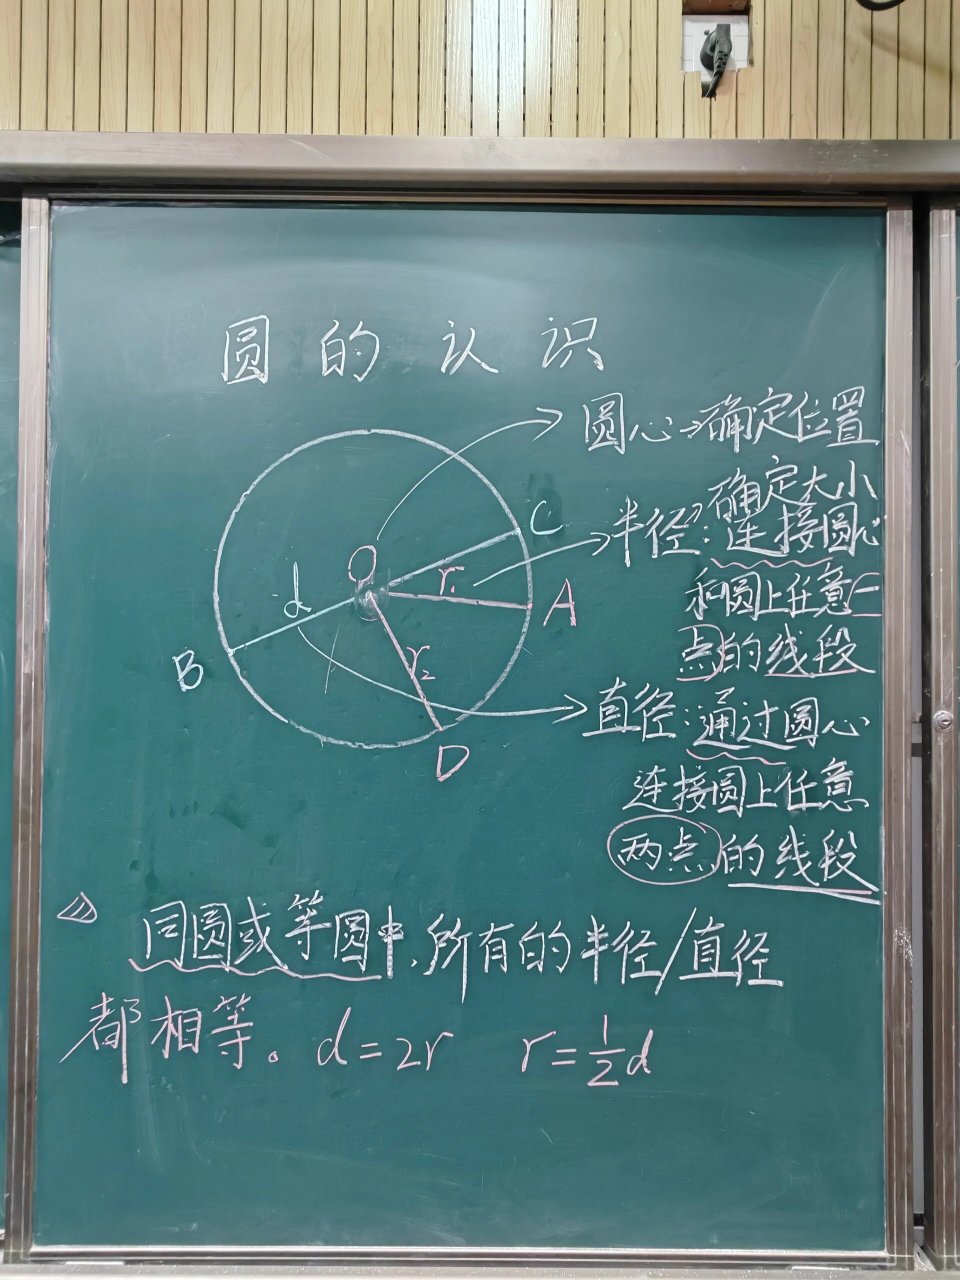 圆的认识
圆心→确定位置
确定大小
半径:连接圆心
和圆上任意一
点的线段
直径:通过圆心
连接圆上任意
两点的线段
C
O
r₁
A
d
B
r₂
D
同圆或等圆中,所有的半径/直径
都相等。d=2r r=\frac{1}{2}d